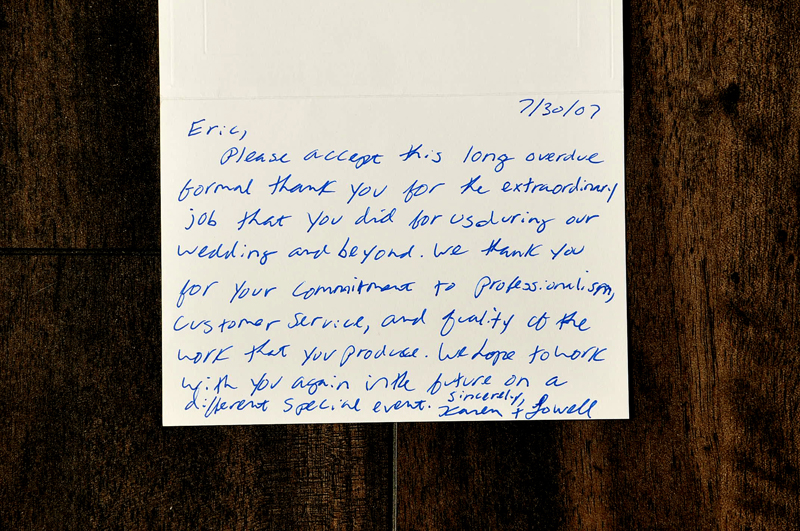 7/30/07
Eric,
Please accept this long overdue
formal thank you for the extraordinary
job that you did for us during our
wedding and beyond. We thank you
for your commitment to professionalism,
customer service, and quality of the
work that you produce. We hope to work
with you again in the future on a
different special event. Sincerely,
Karen + Lowell